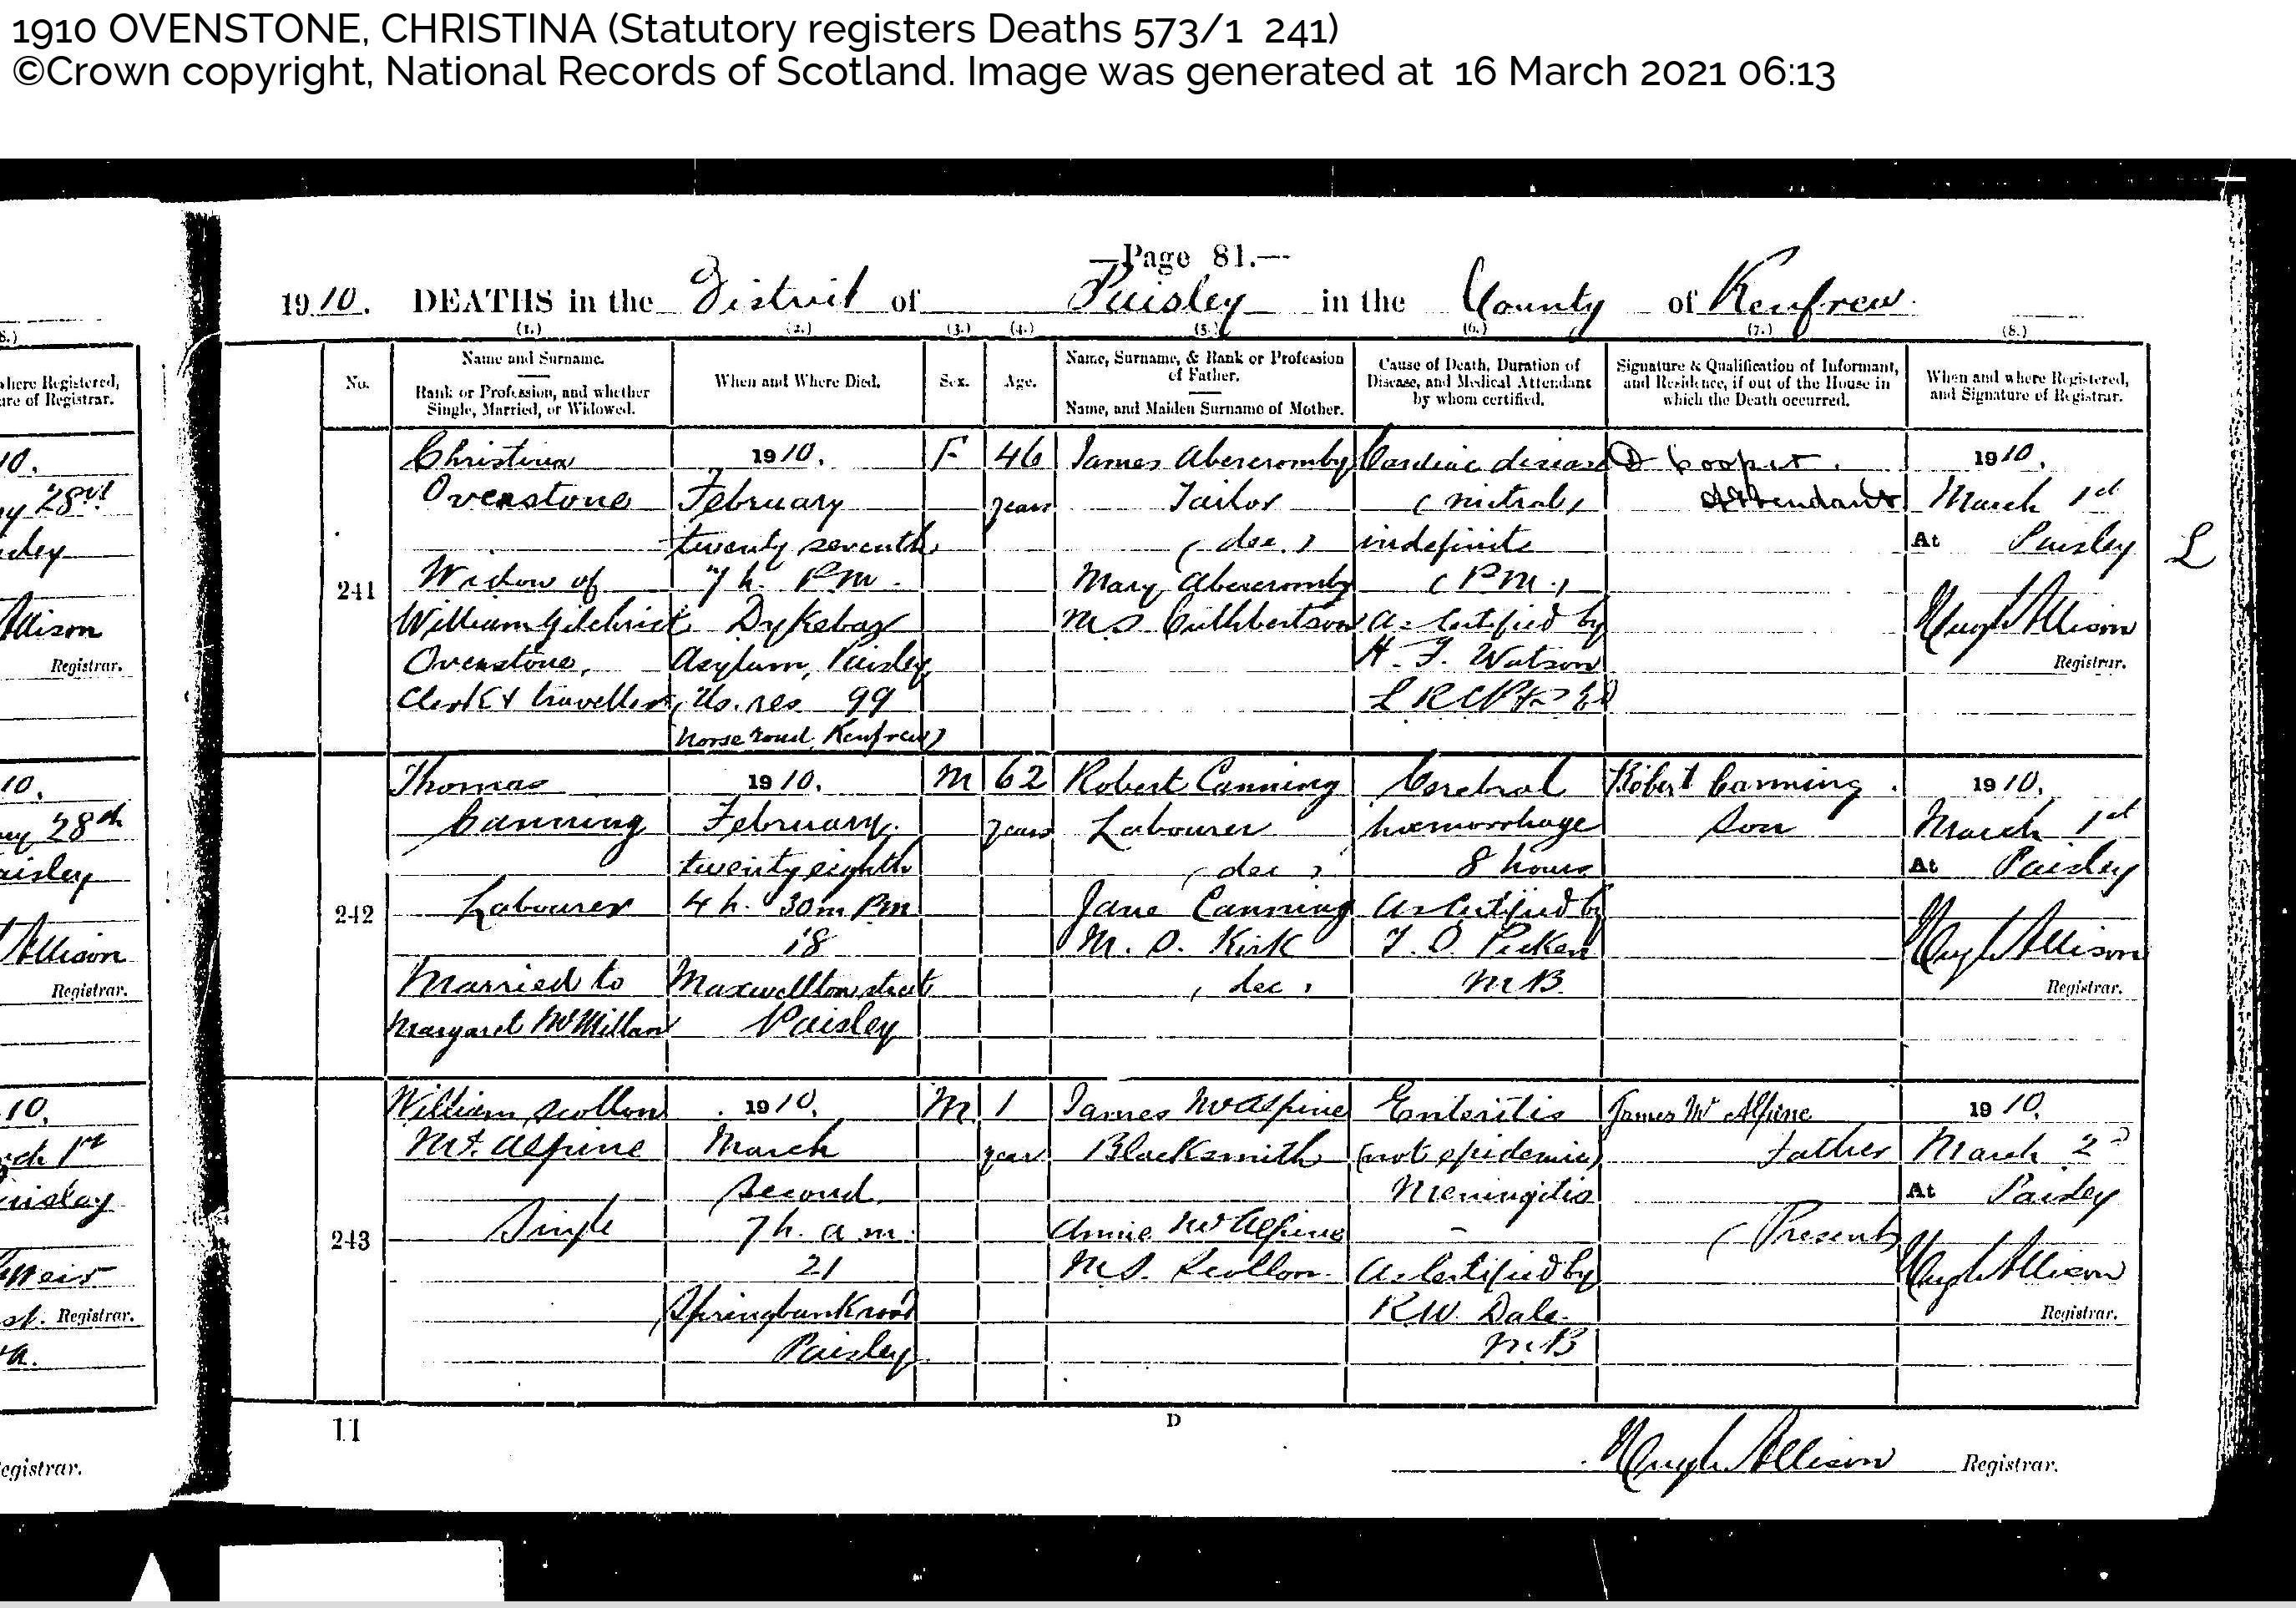 1910 OVENSTONE, CHRISTINA (Statutory registers Deaths 573/1 241)
©Crown copyright, National Records of Scotland. Image was generated at 16 March 2021 06:13
—Page 81.—
1910. DEATHS in the District of Paisley in the County of Renfrew
(1.) (2.) (3.) (4.) (5.) (6.) (7.) (8.)
No.
Name and Surname.
Rank or Profession, and whether
Single, Married, or Widowed.
When and Where Died.
Sex.
Age.
Name, Surname, & Rank or Profession
of Father.
Name, and Maiden Surname of Mother.
Cause of Death, Duration of
Disease, and Medical Attendant
by whom certified.
Signature & Qualification of Informant,
and Residence, if out of the House in
which the Death occurred.
When and where Registered,
and Signature of Registrar.
241
Christina
Ovenstone
Widow of
William Gilchrist
Ovenstone,
Clerk & traveller
1910.
February
twenty seventh
7 h. P.M.
Dykebar
Asylum, Paisley
Us. res. 99
Renfrew)
F
46
years
James Abercromby
Tailor
(dec.)
Mary Abercromby
M.S. Cuthbertson
Cardiac disease
(mitral)
indefinite
(P.M.)
As Certified by
H. F. Watson
L R C P & S Ed
D Cooper.
Attendant
1910,
March 1st
At Paisley
Hugh Allison
Registrar.
L
242
Thomas
Canning
Labourer
Married to
Margaret McMillan
1910.
February
twenty eighth
4 h. 30 m PM
18
Maxwellton street
Paisley
M
62
years
Robert Canning
Labourer
(dec)
Jane Canning
M. S. Kirk
(dec)
Cerebral
haemorrhage
8 hours
As Certified by
Picken
M B
Robert Canning.
Son
1910,
March 1st
At Paisley
Hugh Allison
Registrar.
243
William Scollon
McAlpine
Single
1910.
March
Second
7 h. a.m.
21
Springbank road
Paisley
M
1
year
James McAlpine
Blacksmith
Annie McAlpine
M.S. Scollon
Enteritis
(not epidemic)
Meningitis
As Certified by
R.W. Dale
M.B
James McAlpine
Father
(Present)
1910.
March 2d
At Paisley
Hugh Allison
Registrar.
11
D
Hugh Allison Registrar.